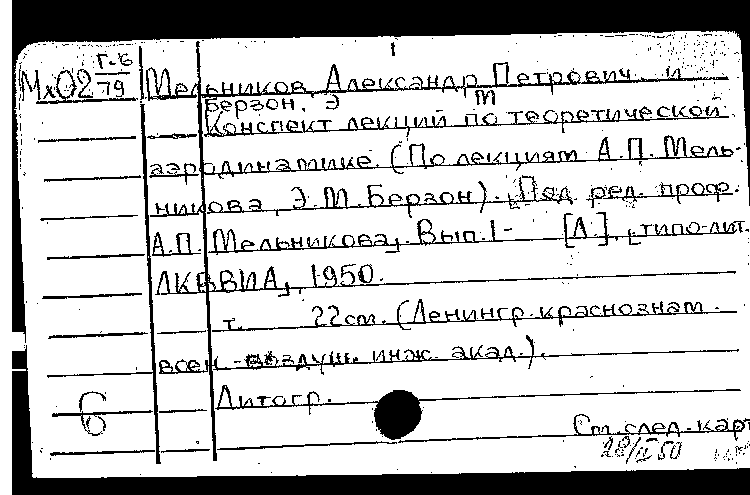 1
Г-6
Мх02 79 Мельников, Александр Петрович и
Берзон, Э М
Конспект лекций по теоретической
аэродинамике. (По лекциям А.П. Мель-
никова, Э.М. Берзон). Под ред. проф.
А.П. Мельникова. Вып. 1- [Л.], типо-лит.
ЛКВВИА, 1950.
т. 22см. (Ленингр. краснознам.
воен-воздуш. инж. акад.).
6 Литогр.
См. след. карт
28/II 50